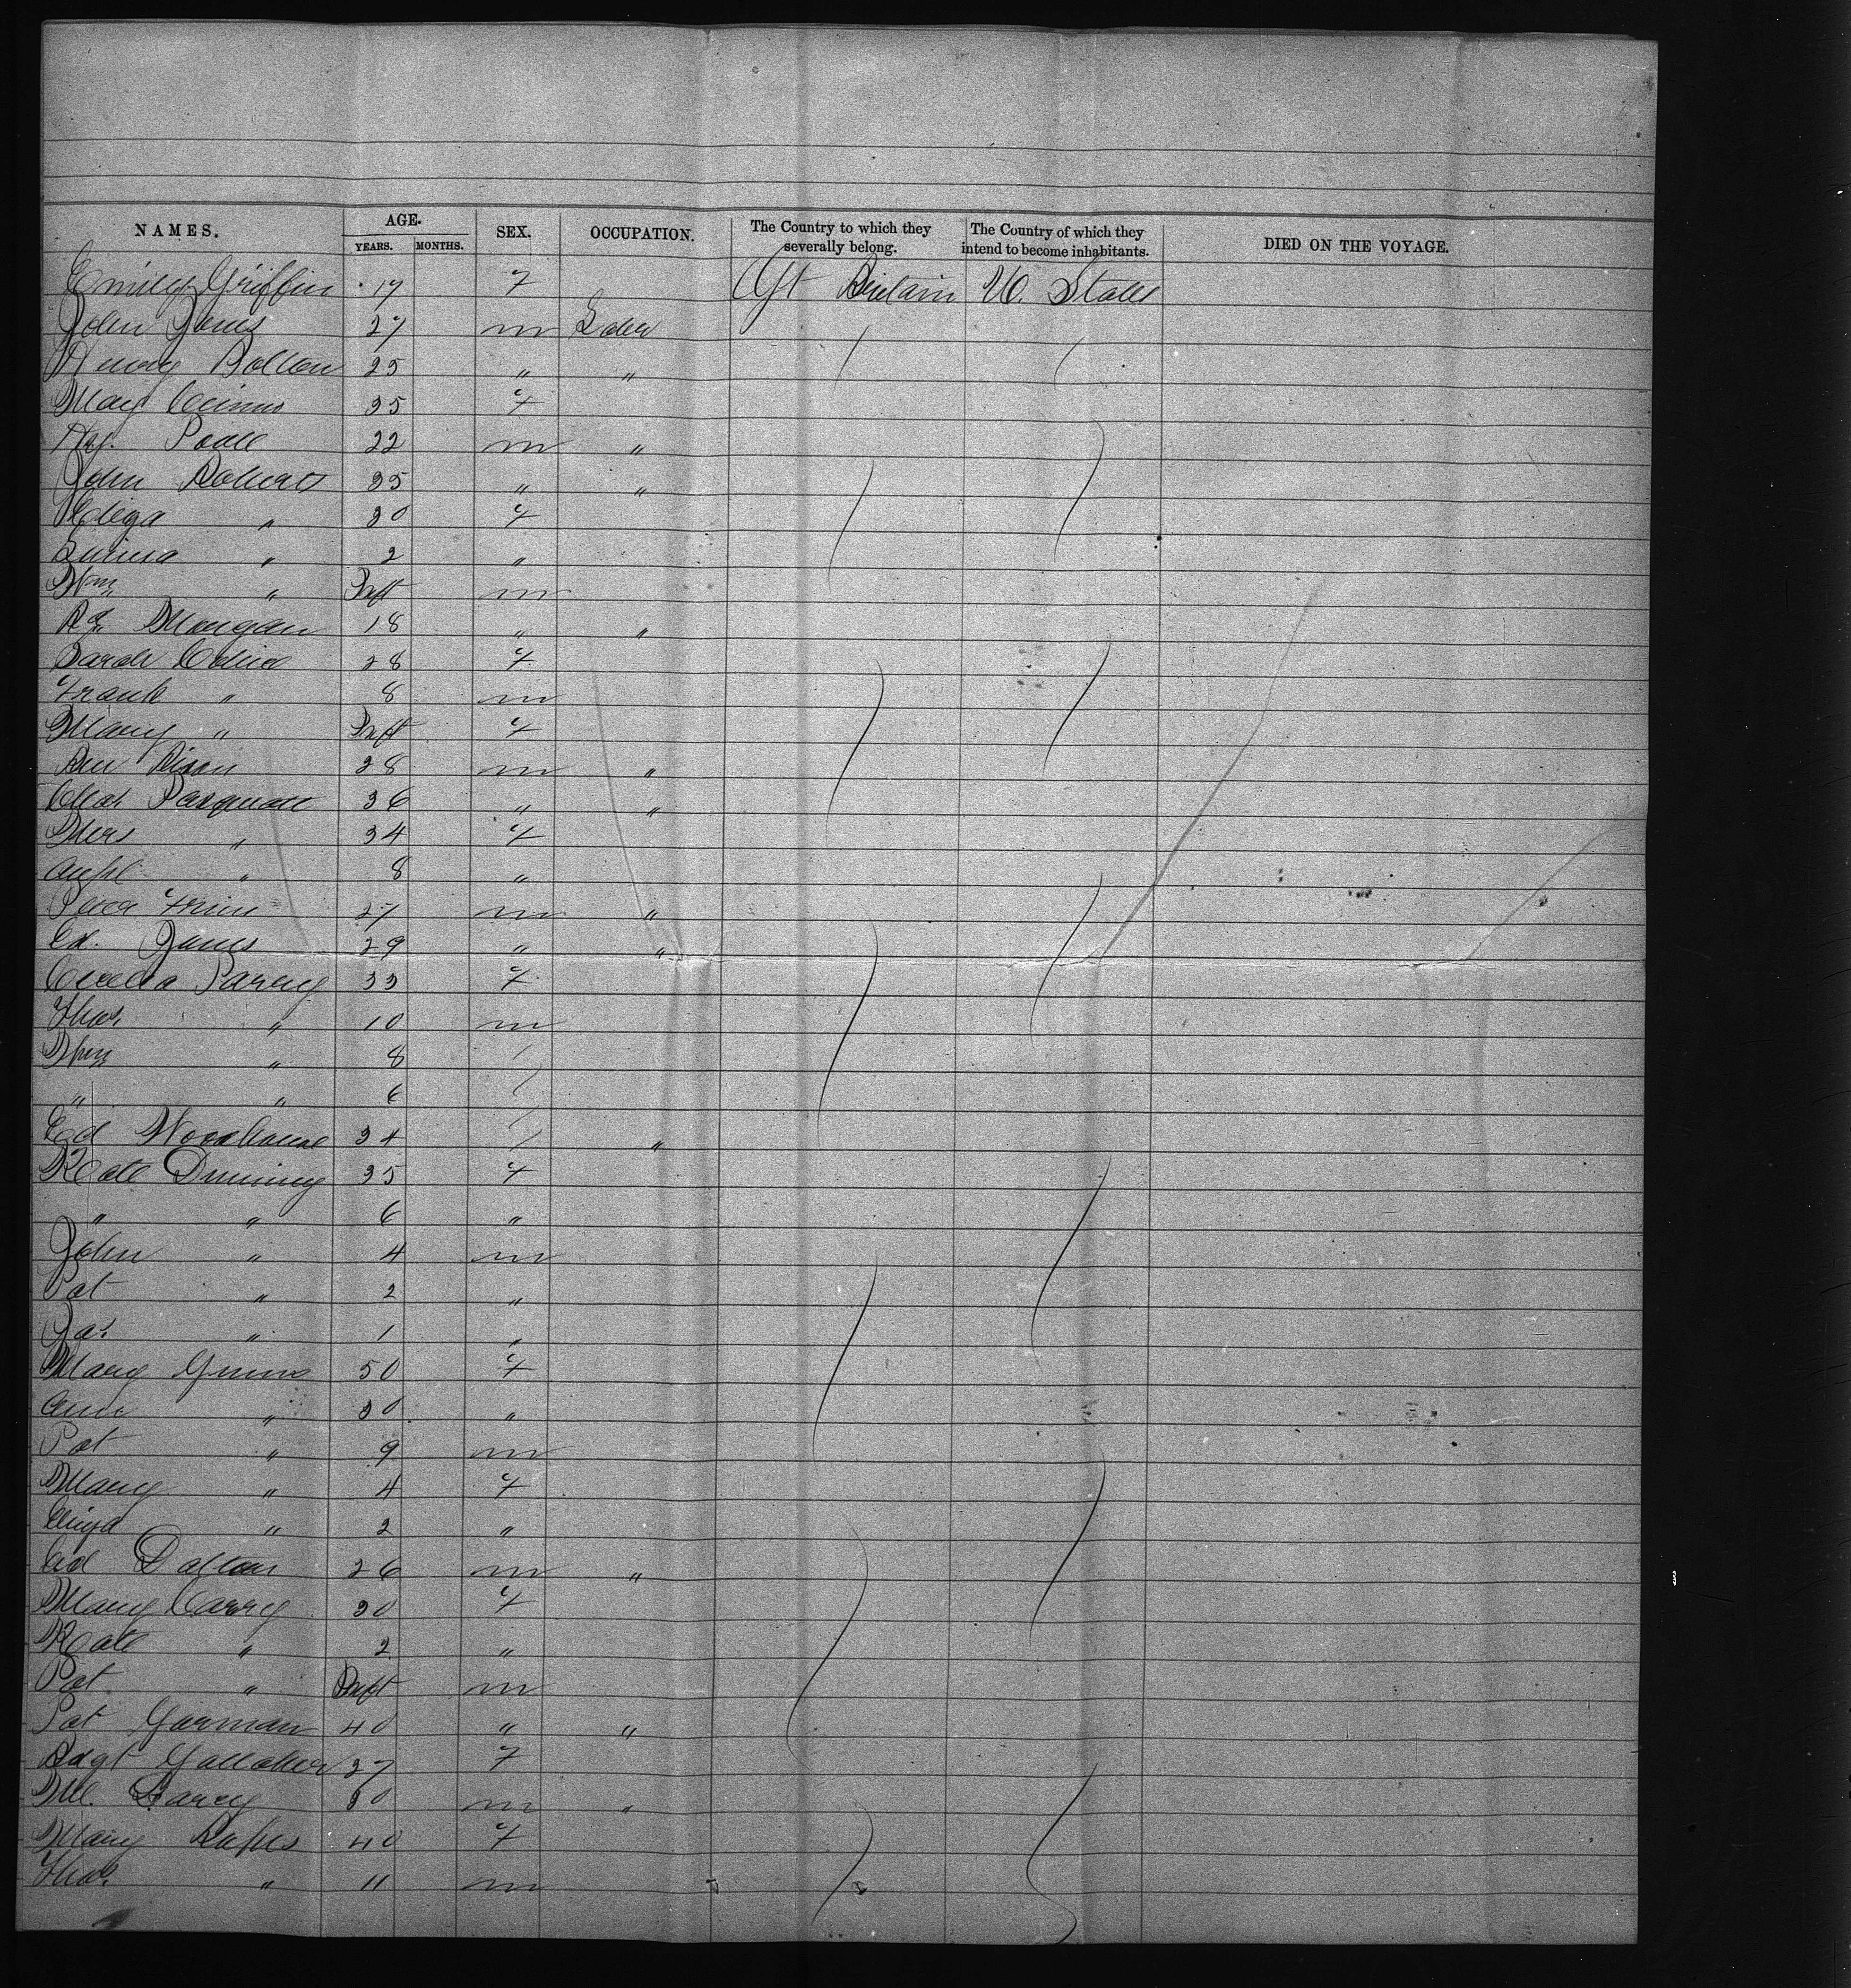 NAMES. AGE. SEX. OCCUPATION. The Country to which they severally belong. The Country of which they intend to become inhabitants. DIED ON THE VOYAGE.
YEARS. MONTHS.
Emily Griffin 17 F Gt Britain U. States
John Jones 27 m Labr
Henry Bolton 25 " "
Mary 35 F
Hy. Poole 22 m "
John Roberts 35 " "
Eliza " 30 F
Emma " 2 "
Wm " Inft m
Rd Morgan 18 " "
Sarah 28 F
Frank " 8 m
Mary " Inft F
Ben Dixon 28 m "
Chas Pasquall 36 " "
Mrs " 34 F
" 8 "
Peter 27 m "
Ed. James 29 " "
Cecelia Parrey 33 F
Thos. " 10 m
" 8
" " 6
Ed Woodhouse 34 "
Kate 35 F
" " 6 "
John " 4 m
Pat " 2 "
Jas. " 1 "
Mary 50 F
Ann " 30 "
Pat " 9 m
Mary " 4 F
Eliza " 2 "
Ed Dalton 26 m "
Mary Carrey 30 F
Kate " 2 "
Pat " Inft m
Pat Gorman 40 " "
Bdgt Gallaher 27 F
Ml. m "
Mary 40 F
Thos. " 11 m